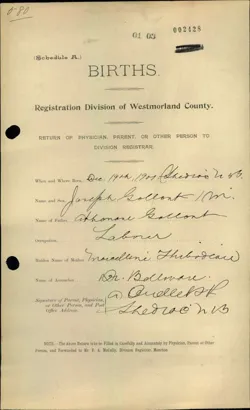 5-80
01 05 002125
(Schedule A.)
BIRTHS.
Registration Division of Westmorland County.
RETURN OF PHYSICIAN, PARENT, OR OTHER PERSON TO
DIVISION REGISTRAR.
When and Where Born, Dec 19th Shediac N B.
Name and Sex, Joseph Gallant M.
Name of Father, Gallant
Occupation, Laborer
Maiden Name of Mother, Thibodeau
Name of Accoucheur, Dr.
Signature of Parent, Physician,
or other Person, and Post
Office Address,
Shediac N B
NOTE.—The above Return is to be Filled in Carefully and Accurately by Physician, Parent or Other
Person, and Forwarded to Division Registrar, Moncton